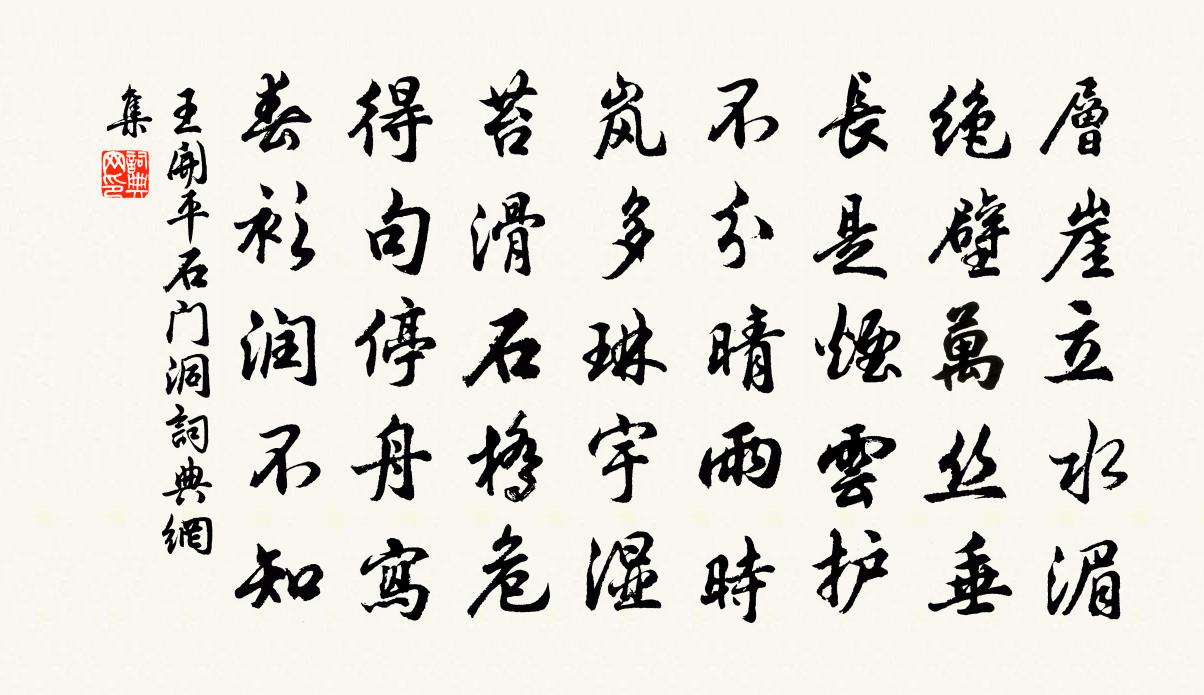 層崖立水湄
绝壁萬丝垂
長是煙雲护
不分晴雨時
岚多琳宇湿
苔滑石橋危
得句停舟寫
春衫润不知
王開平石门洞詞典網
集
詞典网印